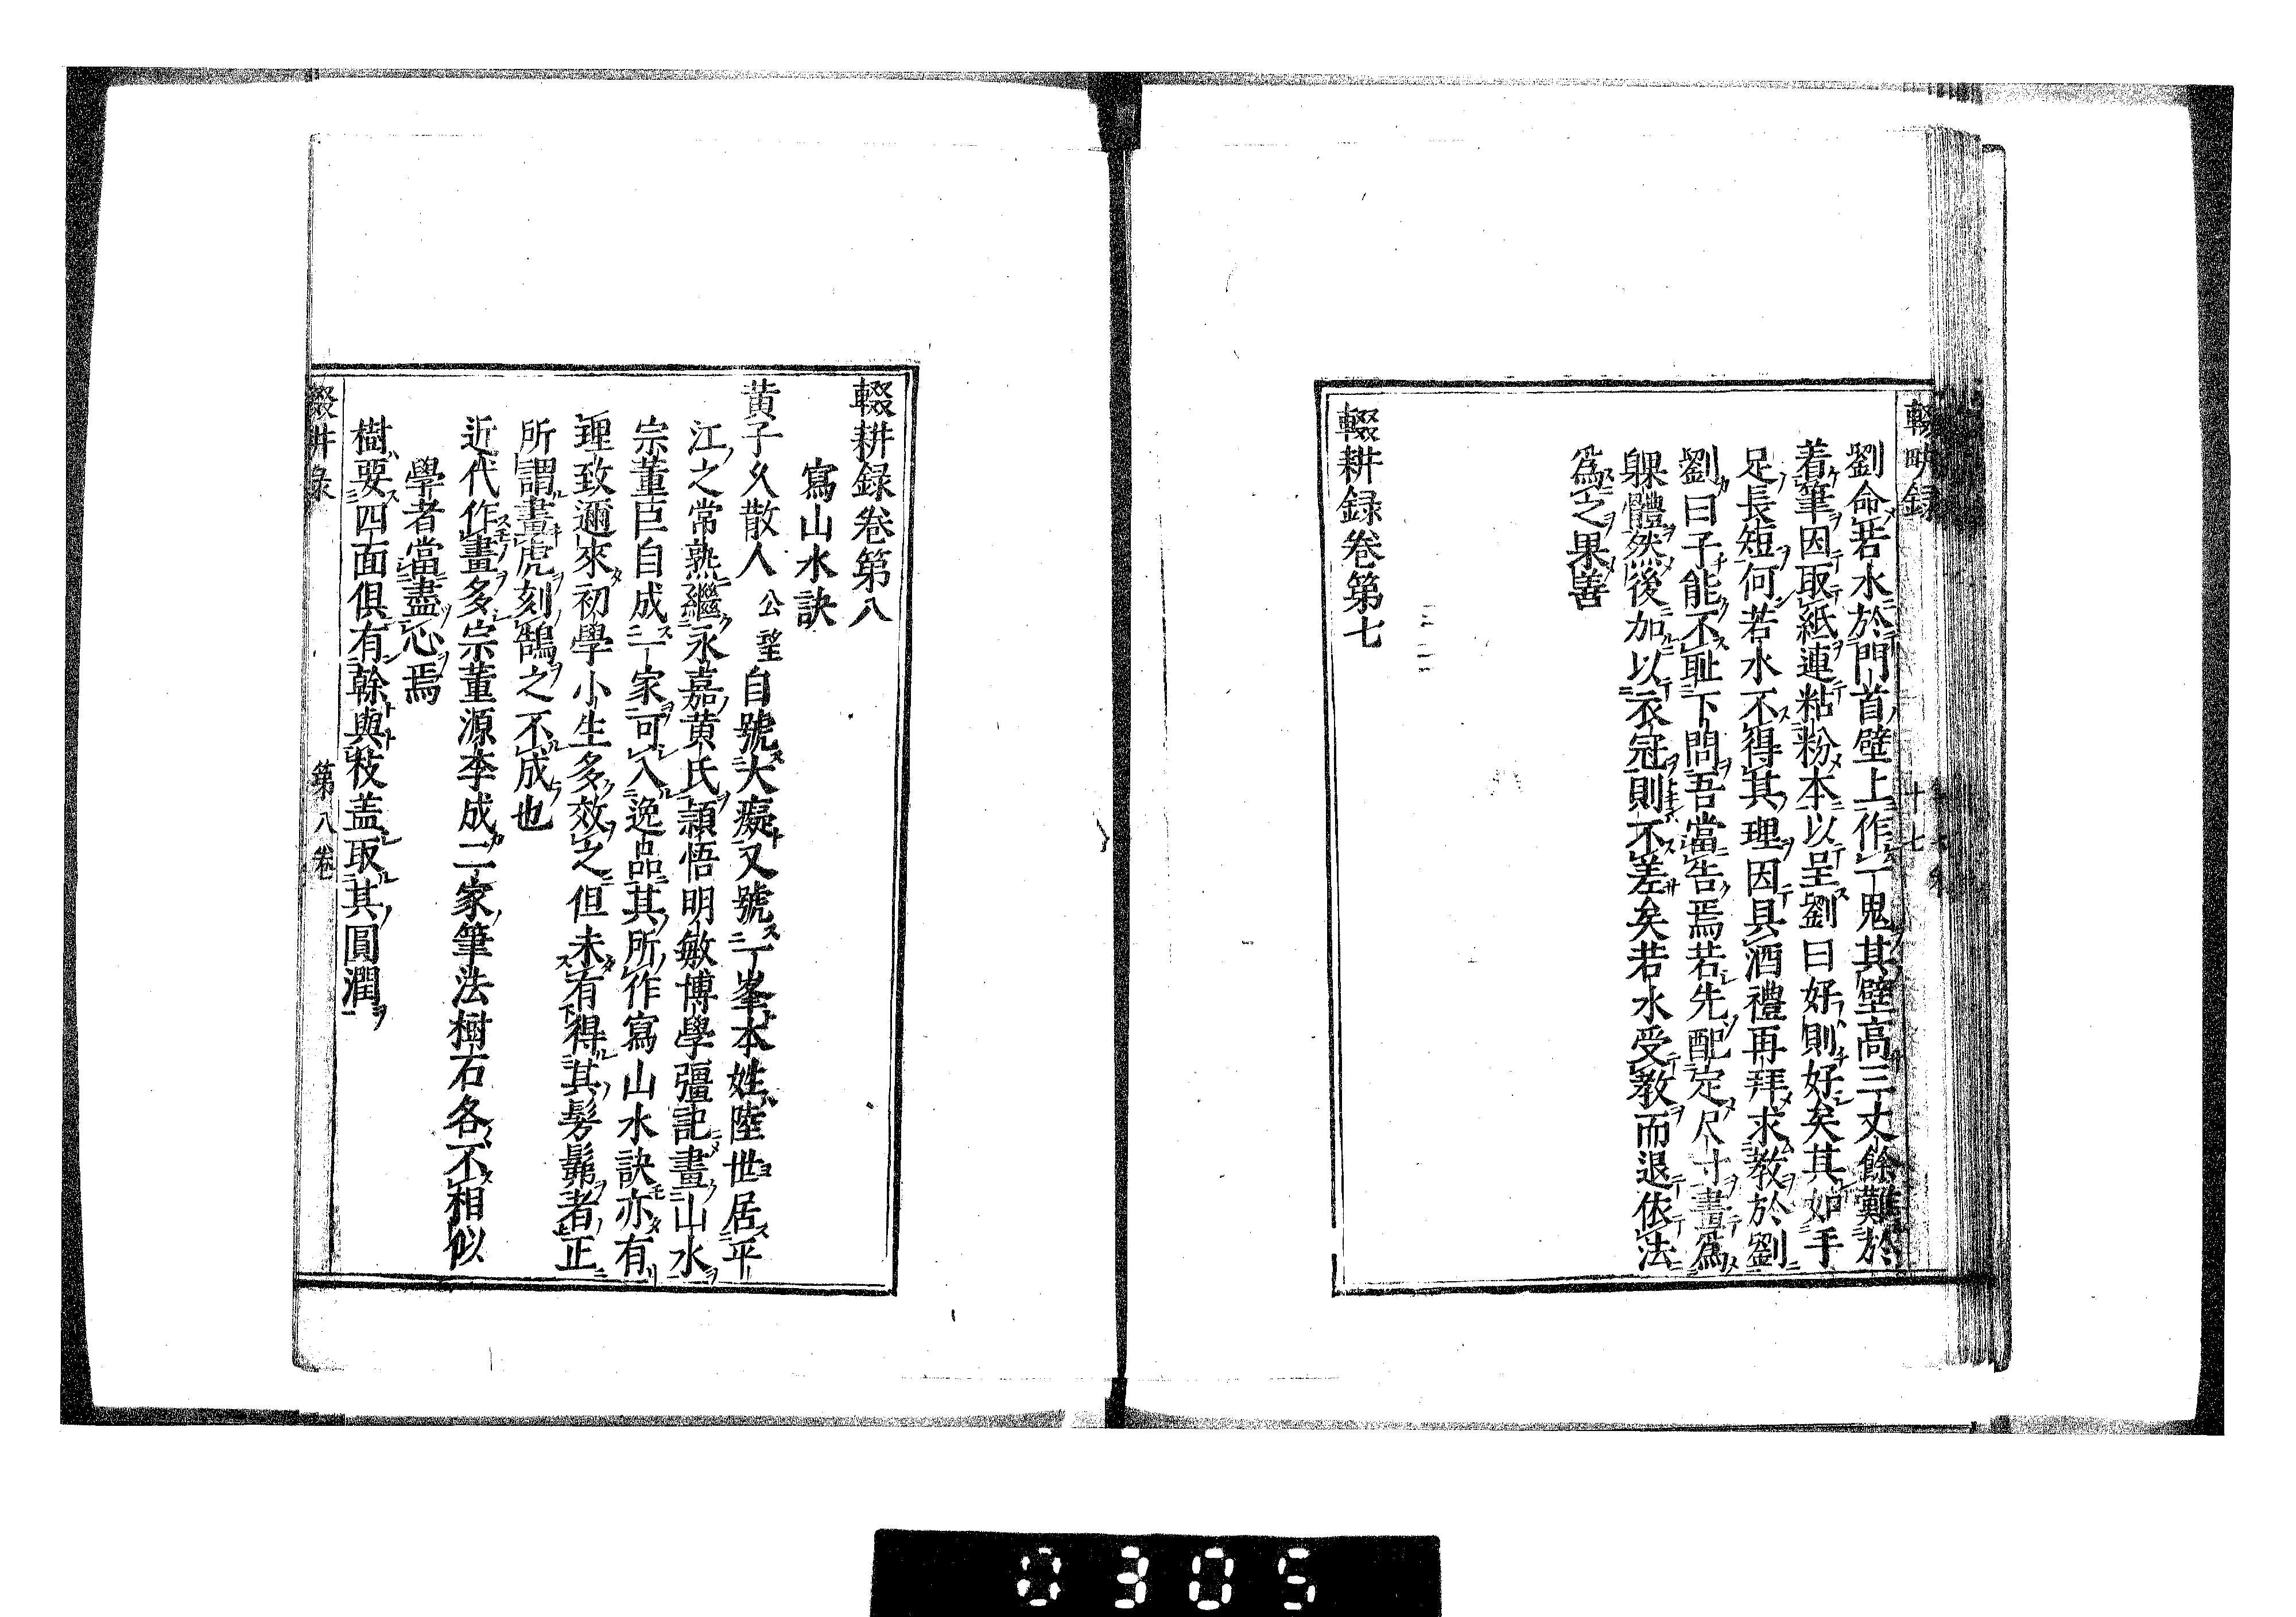 輟耕録
十七
劉命若水於門首壁上作一鬼其壁高三丈餘難於
着筆因取紙連粘粉本以呈劉曰好則好矣其如手
足長短何若水不得其理因具酒禮再拜求教於劉
劉曰子能不耻下問吾當告焉若先配定尺寸畫爲
躶體然後加以衣冠則不差矣若水受教而退依法
爲之果善
輟耕録卷第七
輟耕録卷第八
寫山水訣
黄子久散人公望自號大癡又號一峯本姓陸世居平
江之常熟繼永嘉黄氏頴悟明敏博學彊記畫山水
宗董巨自成一家可入逸品其所作寫山水訣亦有
理致邇來初學小生多效之但未有得其髣髴者正
所謂畫虎刻鵠之不成也
近代作畫多宗董源李成二家筆法樹石各不相似
學者當盡心焉
樹要四面俱有幹與枝盖取其圓潤
輟耕録
第八卷
0305